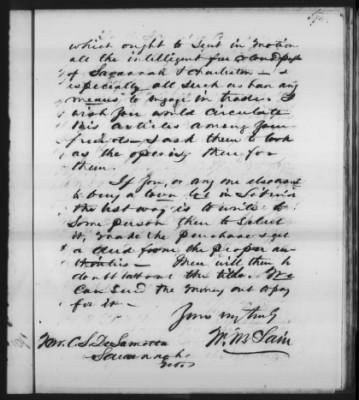 which ought to send in motion
all the intelligent free colored people
of Savannah & Charleston —
especially all such as have any
means to engage in trade. I
wish you would circulate
this article among your
friends & ask them to look
at the opening there for
them.
If you, or any one else want
to buy a town lot in
the best way is to write to
some person there to select
it, make the purchase & get
a deed from the proper au-
thorities — There will then be
doubt about the title. We
can send the money out to pay
for it —
Yours very truly
W. McLain
Mr. C. L. DeLamotta
Savannah